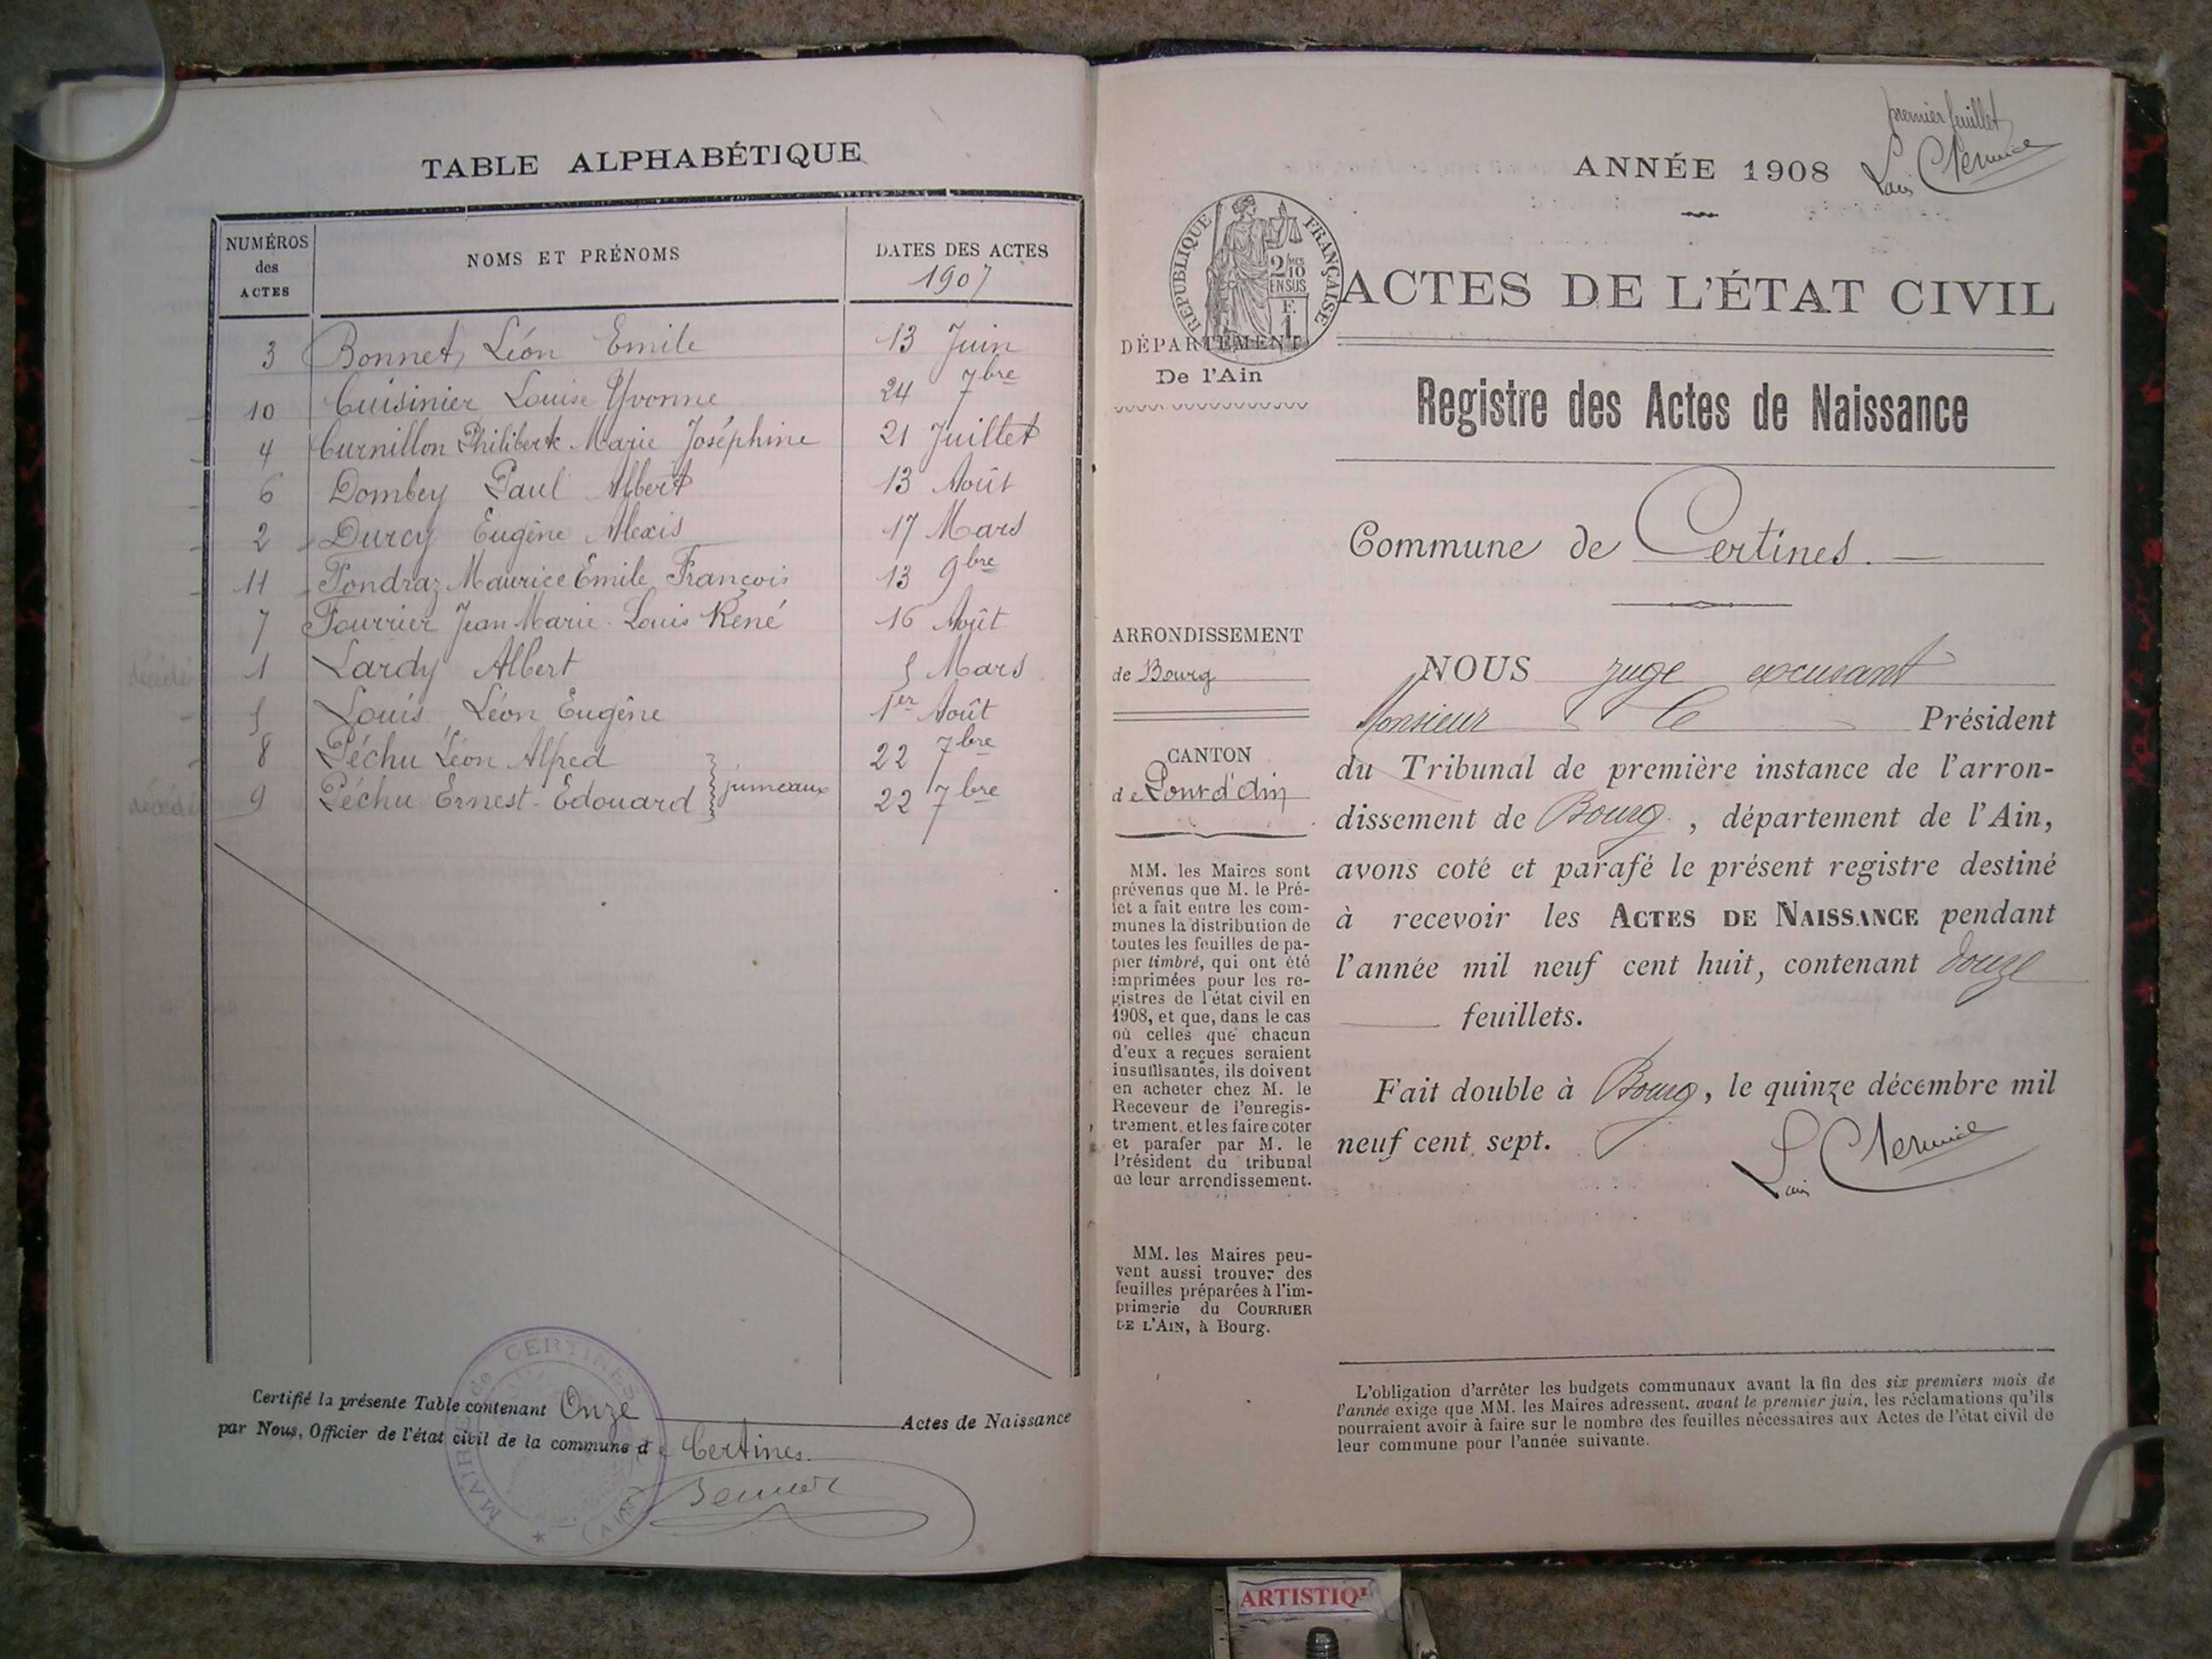 TABLE ALPHABÉTIQUE
NUMÉROS des ACTES
NOMS ET PRÉNOMS
DATES DES ACTES
1907
3 Bonnet, Léon Emile 13 Juin
10 Cuisinier Louise Yvonne 24 7bre
4 Curnillon Philiberte Marie Joséphine 21 Juillet
6 Dombey Paul Albert 13 Août
2 Durcy Eugène Alexis 17 Mars
11 Fondraz Maurice Emile François 13 9bre
7 Fourrier Jean Marie Louis René 16 Août
décédé 1 Lardy Albert 5 Mars
5 Louis Léon Eugène 1er Août
8 Péchu Léon Alfred 22 7bre
jumeaux
décédé 9 Péchu Ernest-Edouard 22 7bre
Certifié la présente Table contenant Onze Actes de Naissance
par Nous, Officier de l'état civil de la commune de Certines.
MAIRIE de CERTINES
(AIN)
premier feuillet
ANNÉE 1908
RÉPUBLIQUE FRANÇAISE
2/10 EN SUS
F. 1
ACTES DE L'ÉTAT CIVIL
DÉPARTEMENT
De l'Ain
Registre des Actes de Naissance
Commune de Certines.
ARRONDISSEMENT
de Bourg
CANTON
de Pont d'Ain
MM. les Maires sont
prévenus que M. le Pré-
fet a fait entre les com-
munes la distribution de
toutes les feuilles de pa-
pier timbré, qui ont été
imprimées pour les re-
gistres de l'état civil en
1908, et que, dans le cas
où celles que chacun
d'eux a reçues seraient
insuffisantes, ils doivent
en acheter chez M. le
Receveur de l'enregis-
trement, et les faire coter
et parafer par M. le
Président du tribunal
de leur arrondissement.
MM. les Maires peu-
vent aussi trouver des
feuilles préparées à l'im-
primerie du COURRIER
DE L'AIN, à Bourg.
NOUS juge excusant
Monsieur le Président
du Tribunal de première instance de l'arron-
dissement de Bourg, département de l'Ain,
avons coté et parafé le présent registre destiné
à recevoir les ACTES DE NAISSANCE pendant
l'année mil neuf cent huit, contenant douze
feuillets.
Fait double à Bourg, le quinze décembre mil
neuf cent sept.
L'obligation d'arrêter les budgets communaux avant la fin des six premiers mois de
l'année exige que MM. les Maires adressent, avant le premier juin, les réclamations qu'ils
pourraient avoir à faire sur le nombre des feuilles nécessaires aux Actes de l'état civil de
leur commune pour l'année suivante.
ARTISTIQ